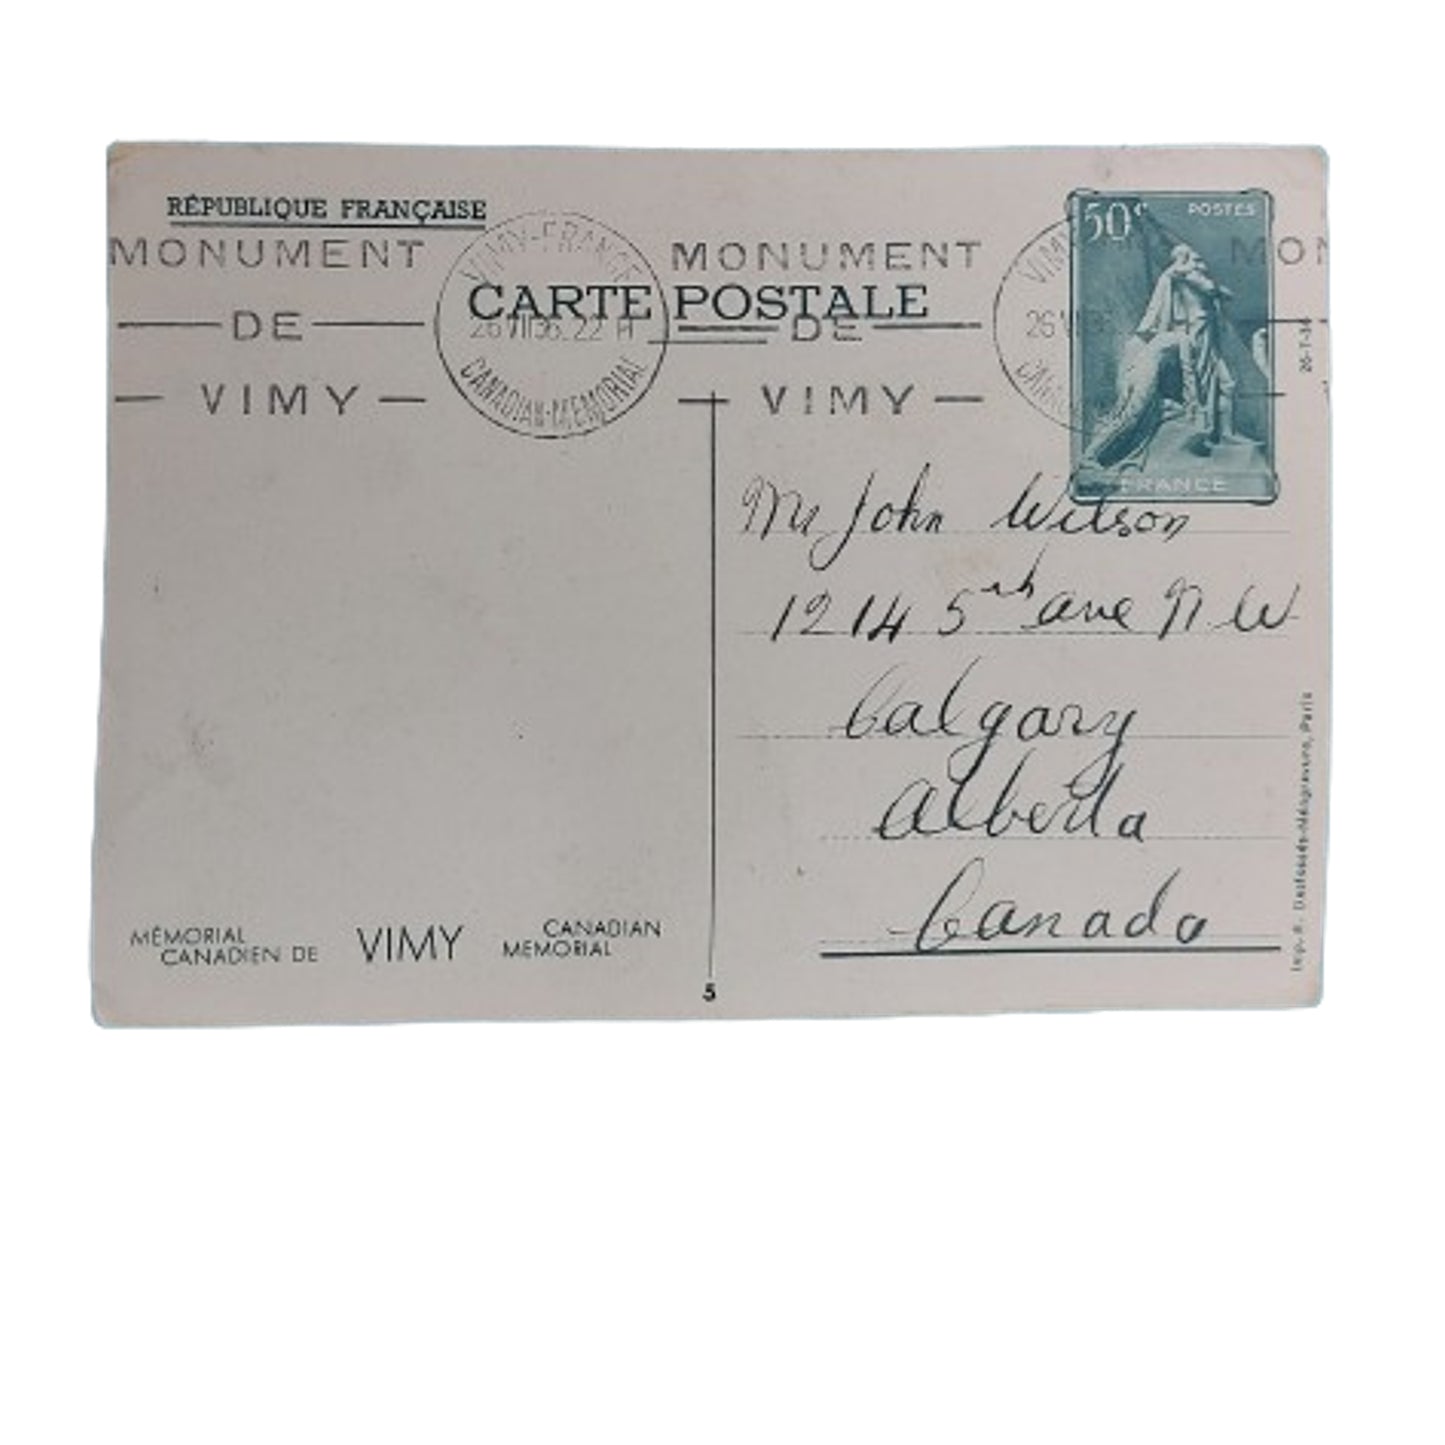 RÉPUBLIQUE FRANÇAISE
MONUMENT
DE
VIMY
VIMY-FRANCE
26 VII 36. 22 H
CANADIAN-MEMORIAL
CARTE POSTALE
MONUMENT
DE
VIMY
26 VII 36
50c POSTES
FRANCE
MON
Mr John Wilson
1214 5th ave N.W
Calgary
Alberta
Canada
MÉMORIAL
CANADIEN DE
VIMY
CANADIAN
MEMORIAL
5
26-7-36
Imp. Desfossés-Néogravure, Paris